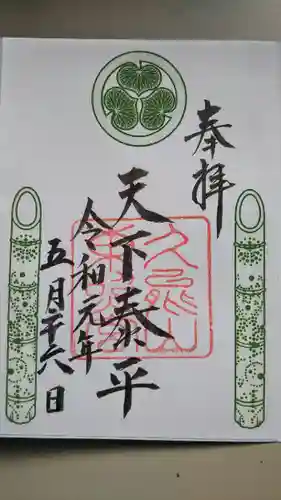 奉拝
天下泰平
令和元年
五月廿六日